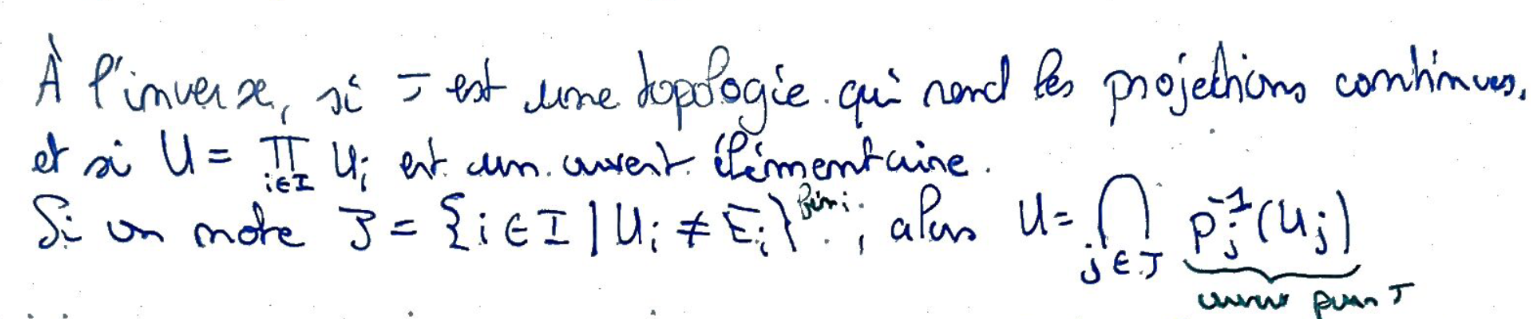 À l'inverse, si τ est une topologie qui rend les projections continues,
et si U = ∏_{i∈I} U_i est un ouvert élémentaire.
Si on note J = {i ∈ I | U_i ≠ E_i} fini, alors U = ⋂_{j∈J} p_j^{-1}(U_j)
ouvert pour τ